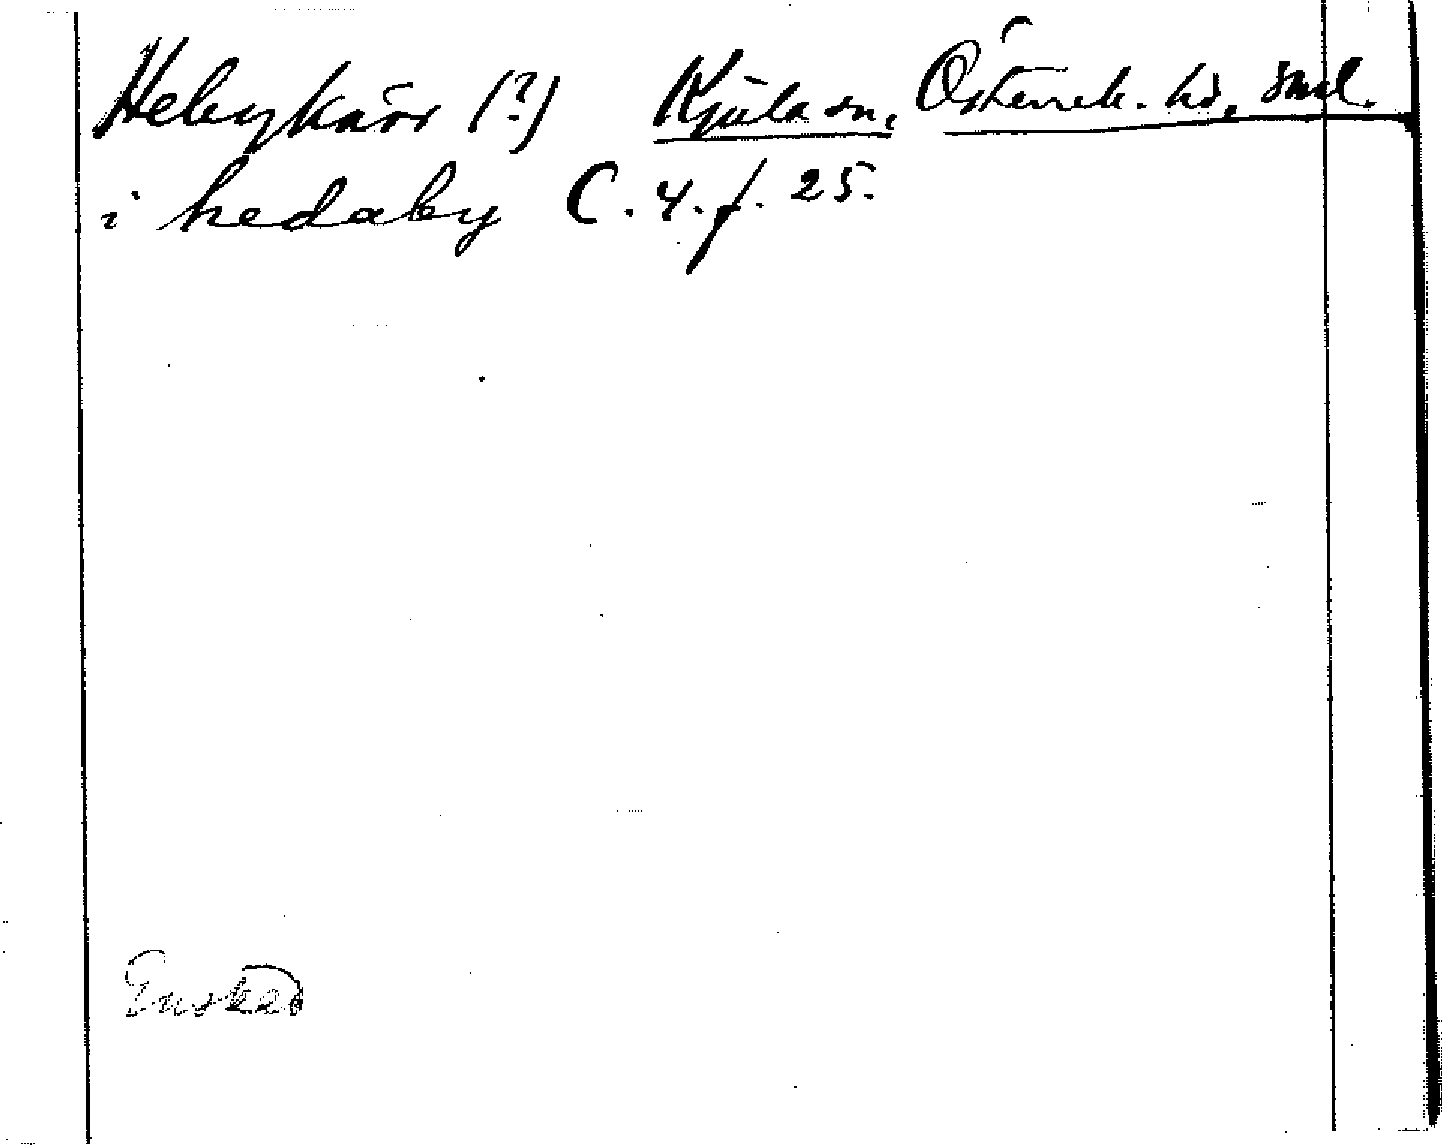 Hebykärr (?) Kjula sn, Österrek. hd, Sml.
i hedaby C. 4. f. 25.
Ensked